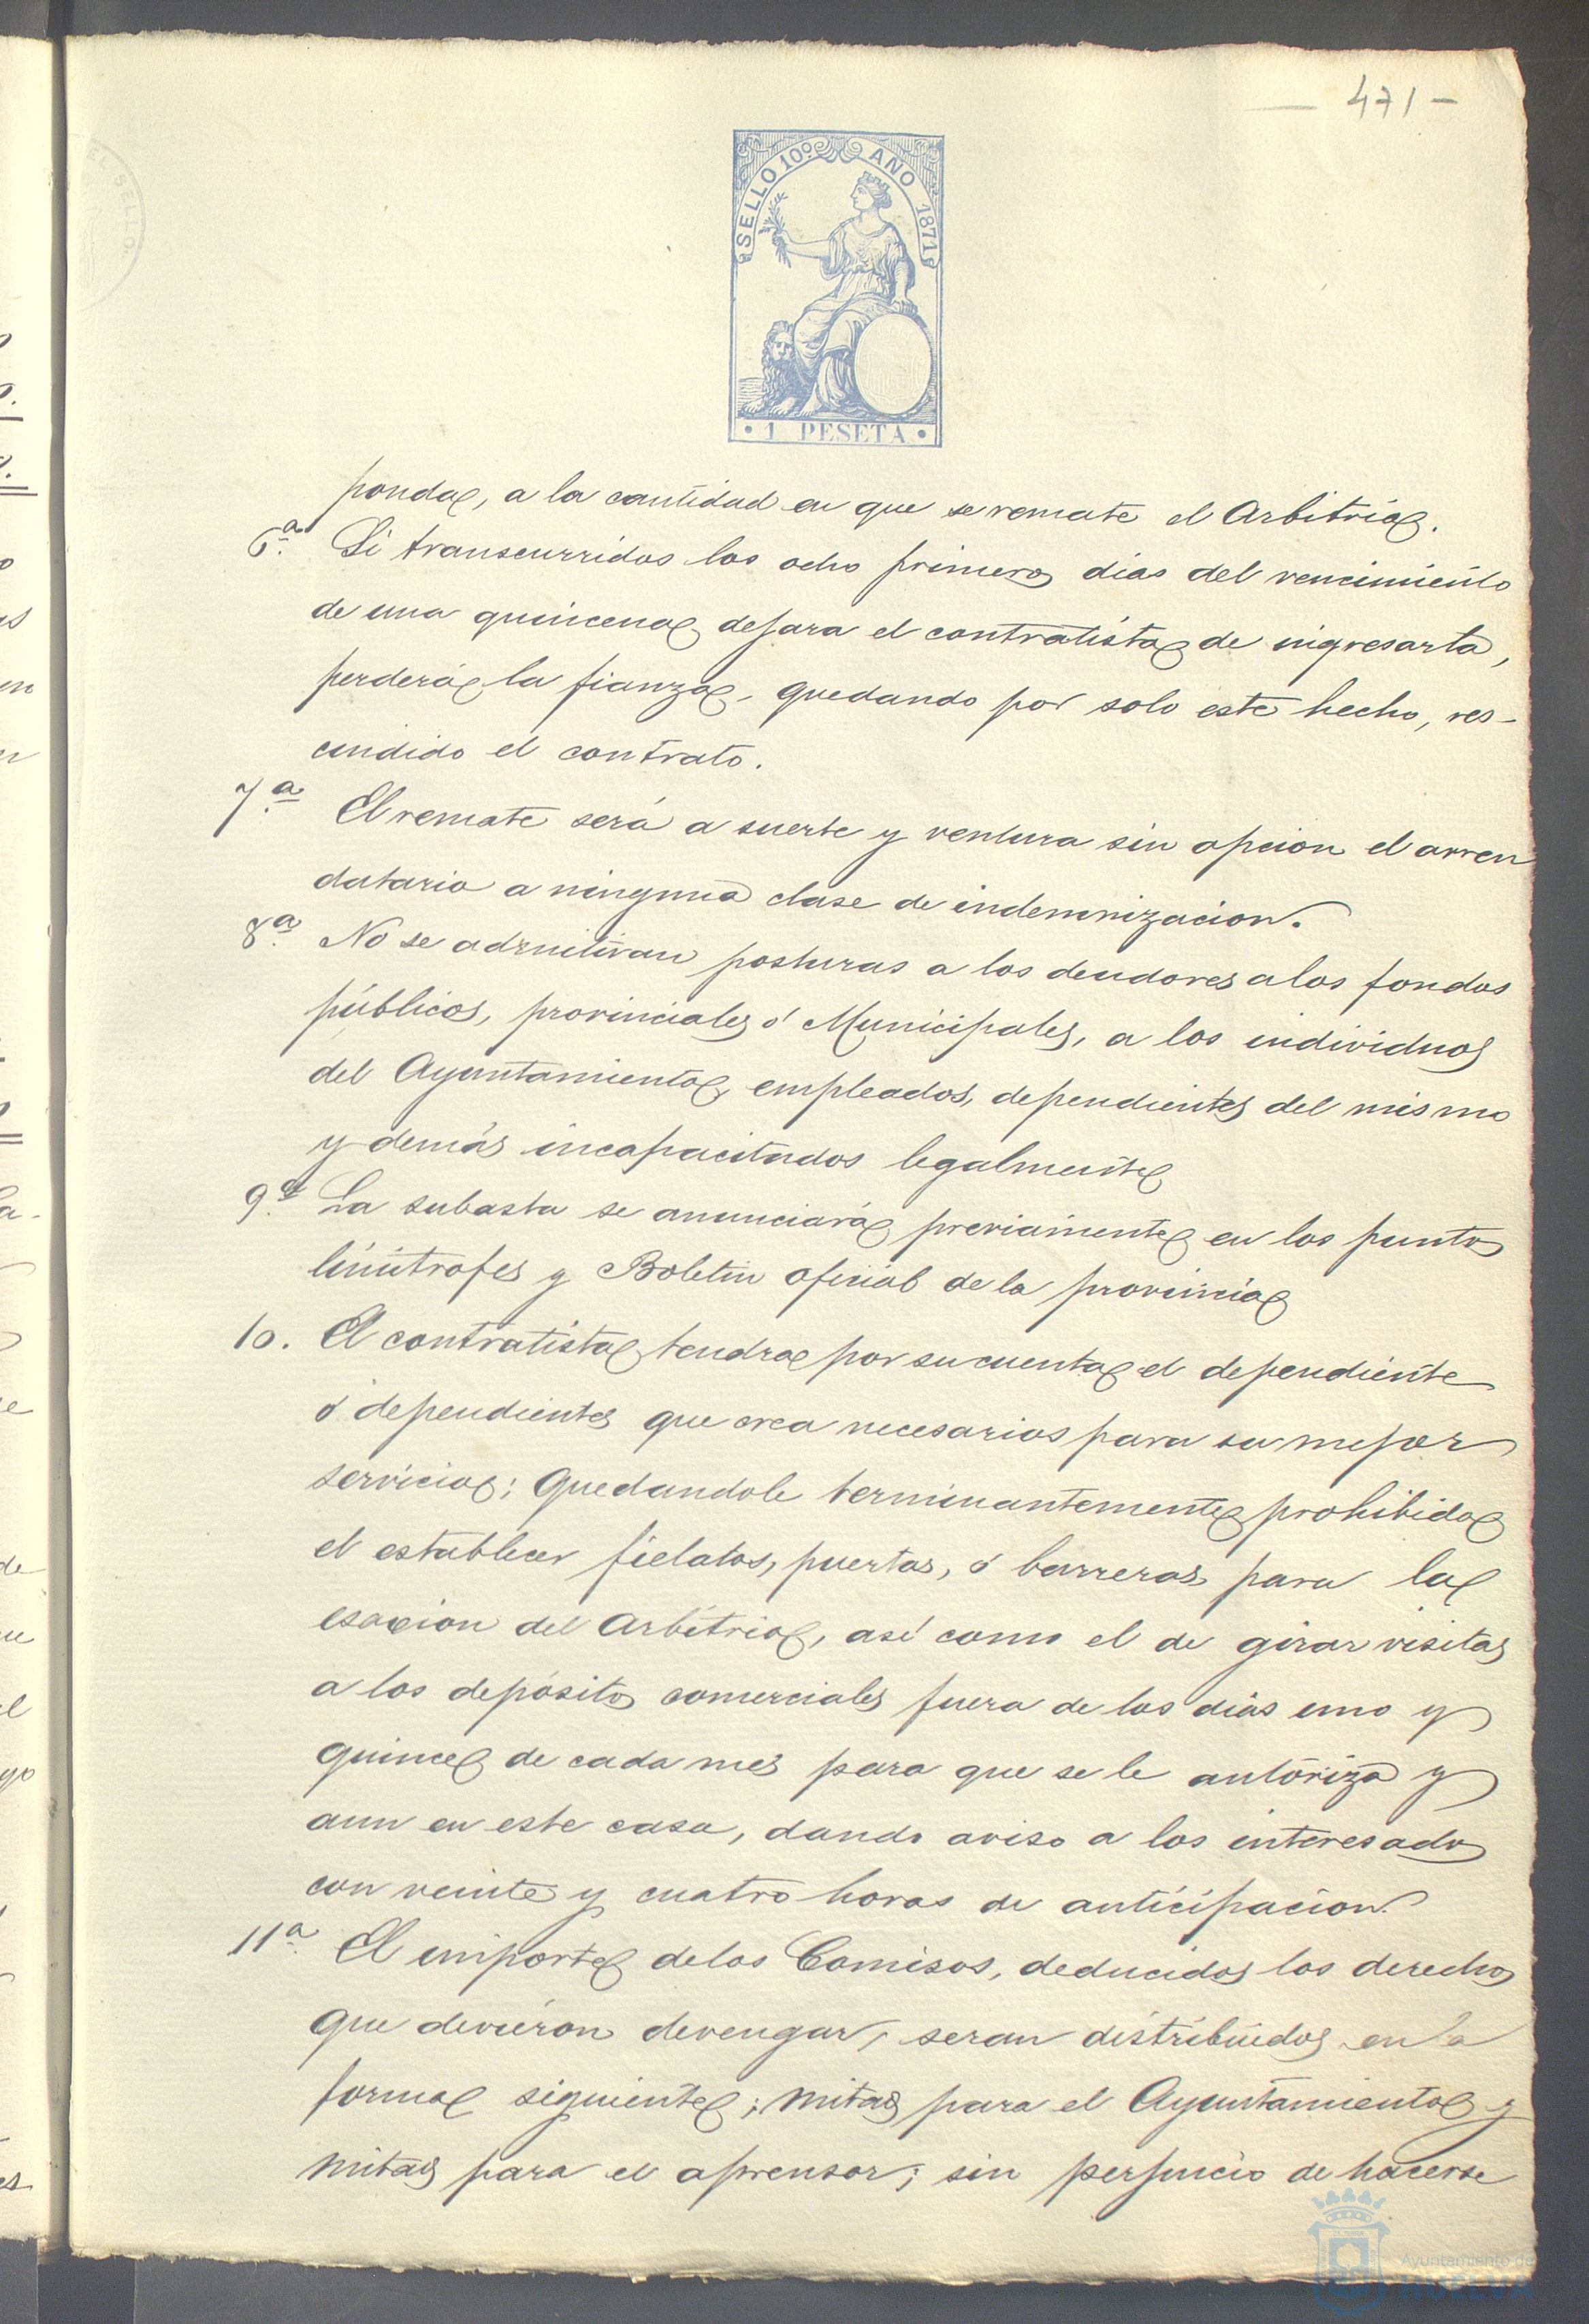 - 471 -
SELLO 10º AÑO 1871
· 1 PESETA ·
ponda, a la cantidad en que se remate el Arbitrio.
6.ª Si transcurridos los ocho primeros dias del vencimiento
de una quincena, dejara el contratista de ingresarla,
perderá la fianza, quedando por solo este hecho, res-
cindido el contrato.
7.ª El remate será a suerte y ventura sin opcion el arren
datario a ninguna clase de indemnizacion.
8.ª No se admitiran posturas a los deudores a los fondos
públicos, provinciales ó Municipales, a los individuos
del Ayuntamiento, empleados, dependientes del mismo
y demás incapacitados legalmente
9.ª La subasta se anunciará previamente en los puntos
limitrofes y Boletin oficial de la provincia
10. El contratista tendra por su cuenta el dependiente
ó dependientes que crea necesarios para su mejor
servicio; quedandole terminantemente prohibido
el establecer fielatos, puertas, ó barreras para la
esaccion del Arbitrio, asi como el de girar visitas
a los depósitos comerciales fuera de los dias uno y
quince de cada mes para que se le autoriza y
aun en este caso, dando aviso a los interesados
con veinte y cuatro horas de anticipacion.
11.ª El importe de los Comisos, deducidos los derechos
que devieron devengar, seran distribuidos en la
forma siguiente; mitad para el Ayuntamiento y
mitad para el aprensor; sin perjuicio de hacerse
Ayuntamiento de
HUELVA